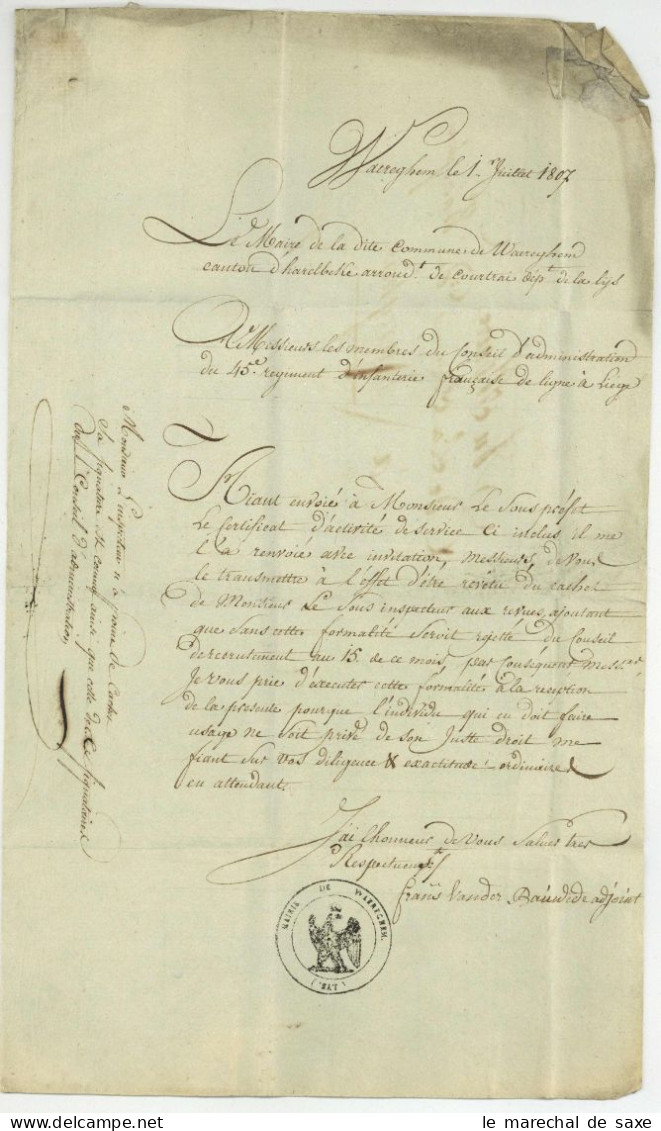 Waereghem le 1.r Juillet 1807
Le Maire de la dite Commune de Waereghem
canton d'harelbeke arroud.t de Courtrai dép.t de la lijs
A Messieurs les membres du Conseil d'administration
du 45.e regiment d'infanterie française de ligne à Liege
Aiant envoiée à Monsieur Le Sous préfet
Le Certificat d'activité de service Ci inclus il me
l'a renvoie avec invitation, Messieurs, de vous
le transmettre à l'effet d'être revetu du cachet
de Monsieur Le Sous inspecteur aux revues, ajoutant
que sans cette formalité seroit rejetté du Conseil
de recrutement au 15. de ce mois, par Conséquent mess.rs
Je vous prie d'executer cette formalité à la reception
de la presente pourque l'individu qui en doit faire
usage ne soit privé de son Juste droit me
fiant sur vos diligence & exactitude ordinaires
en attendant
J'ai l'honneur de vous Saluer tres
Respectueux.t
frans Vander
adjoint
MAIRIE DE WAEREGHEM.
(LYS.)
Monsieur L'inspecteur n'a point de Cachet
Sa signature est connue ainsi que celle des signataires
du Conseil d'administration
le marechal de saxe